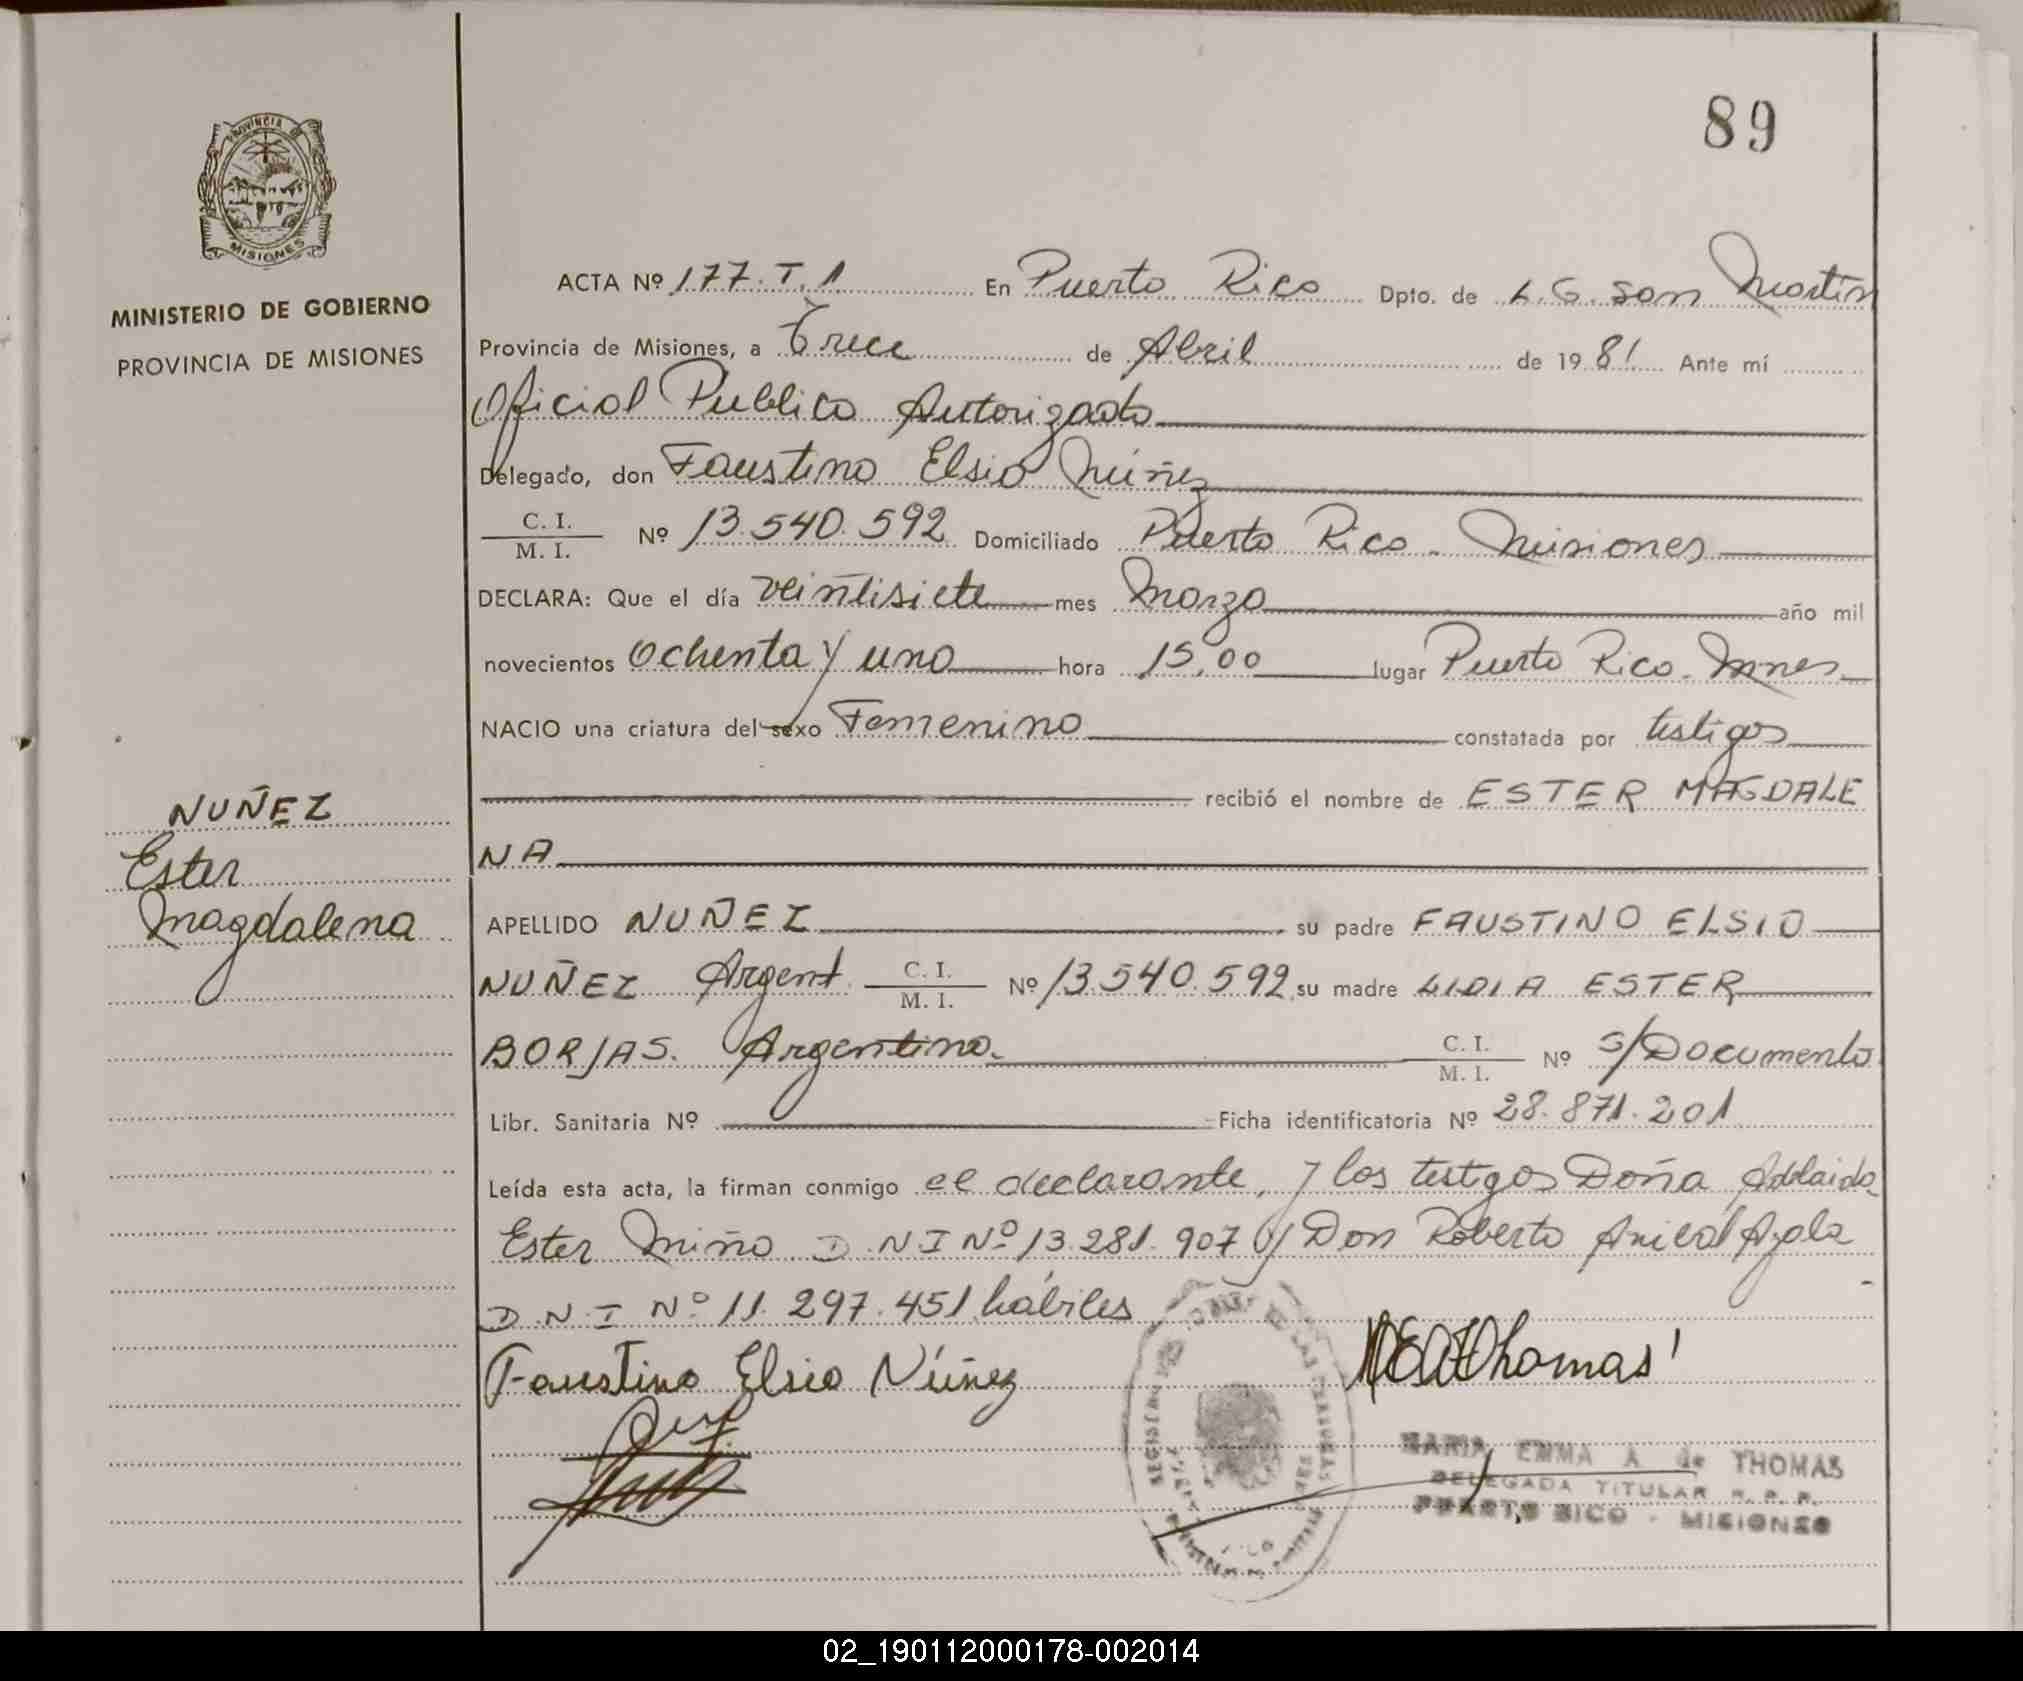 89
PROVINCIA DE
MISIONES
MINISTERIO DE GOBIERNO
PROVINCIA DE MISIONES
ACTA Nº 177.T.1 En Puerto Rico Dpto. de L.G. San Martin
Provincia de Misiones, a Trece de Abril de 1981. Ante mí
Oficial Publico Autorizado
Delegado, don Faustino Elsio Núñez
C. I. / M. I. Nº 13.540.592 Domiciliado Puerto Rico - Misiones
DECLARA: Que el día veintisiete mes Marzo año mil
novecientos ochenta y uno hora 15,00 lugar Puerto Rico. Mnes
NACIO una criatura del sexo Femenino constatada por testigos
recibió el nombre de ESTER MAGDALE
NA
NUÑEZ
Ester
Magdalena
APELLIDO NUÑEZ su padre FAUSTINO ELSIO
NUÑEZ Argent. C. I. / M. I. Nº 13.540.592 su madre LIDIA ESTER
BORJAS. Argentina. C. I. / M. I. Nº S/Documento
Libr. Sanitaria Nº Ficha identificatoria Nº 28.871.201
Leída esta acta, la firman conmigo el declarante, y los testigos Doña Adelaida
Ester Miño D.N.I Nº 13.281.907 y Don Roberto Anibal Ayala
D.N.I Nº 11.297.451 hábiles
Faustino Elsio Núñez
MEAThomas
MARIA EMMA A de THOMAS
DELEGADA TITULAR R. P. P.
PUERTO RICO - MISIONES
02_190112000178-002014